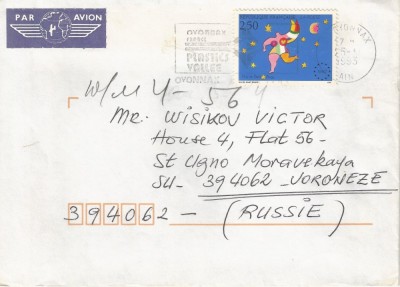 PAR AVION
OYONNAX
PLASTICS
VALLEE
OYONNAX
2,50
OYONNAX
AIN
W/M 4-56 4
Mr. WISIKOV VICTOR
House 4, Flat 56-
St Ugno Moravskaya
SU- 394062-VORONEZE
394062- (RUSSIE)